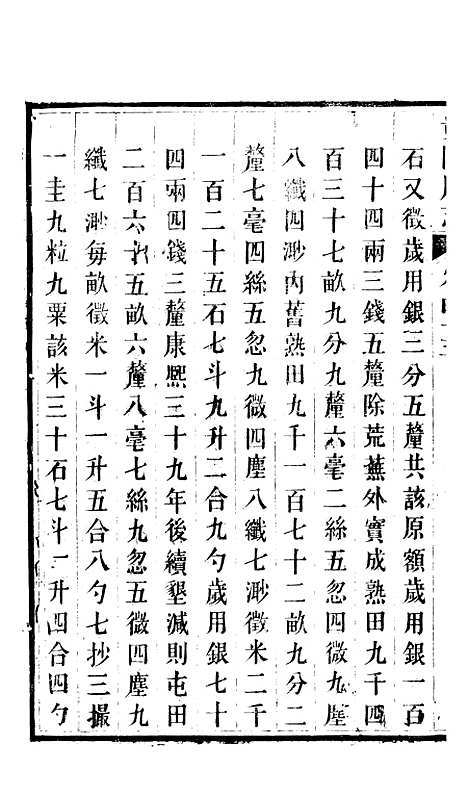 石又徵歲用銀三分五釐共該原額歲用銀一百
四十四兩三錢五釐除荒蕪外實成熟田九千四
百三十七畝九分九釐六毫二絲五忽四微九塵
八纖四渺內舊熟田九千一百七十二畝九分二
釐七毫四絲五忽九微四塵八纖七渺徵米二千
一百二十五石七斗九升二合九勺歲用銀七十
四兩四錢三釐康熙三十九年後續墾減則屯田
二百六十五畝六釐八毫七絲九忽五微四塵九
纖七渺每畝徵米一斗一升五合八勺七抄三撮
一圭九粒九粟該米三十石七斗一升四合四勺